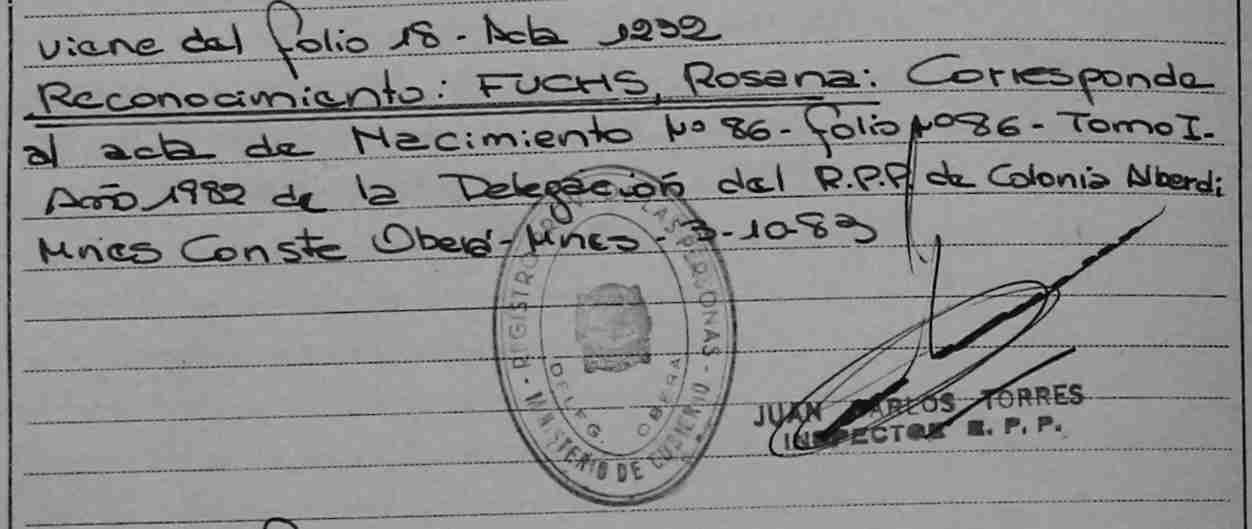 viene del folio 18 - Acta 1292
Reconocimiento: FUCHS, Rosana: Corresponde
al acta de Nacimiento Nº 86 - folio Nº 86 - Tomo I -
Año 1982 de la Delegación del R.P.P. de Colonia Alberdi
Mnes Conste Oberá - Mnes - 3-10-83
REGISTRO PROV. DE LAS PERSONAS - MINISTERIO DE GOBIERNO
DELEG. OBERA
JUAN CARLOS TORRES
INSPECTOR R. P. P.